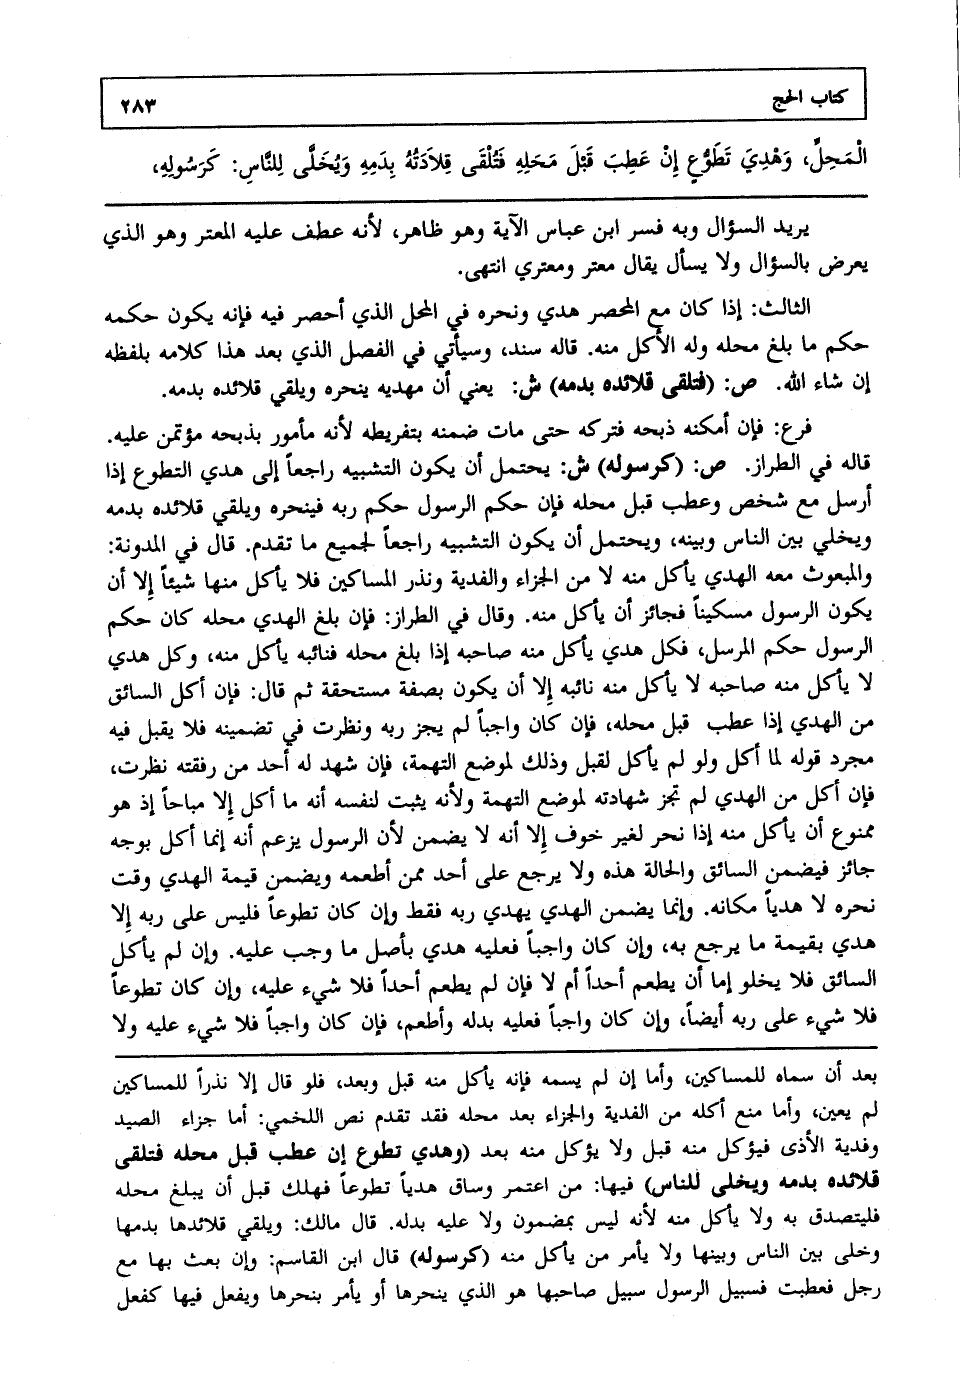 كتاب الحج ٢٨٣
الْمَحِلِّ، وَهْدِيَ تَطَوُّعٍ إِنْ عَطِبَ قَبْلَ مَحَلِهِ فَتُلْقَى قِلاَدَتُهُ بِدَمِهِ وَيُخَلَّى لِلنَّاسِ: كَرَسُولِهِ،
يريد السؤال وبه فسر ابن عباس الآية وهو ظاهر، لأنه عطف عليه المعتر وهو الذي
يعرض بالسؤال ولا يسأل يقال معتر ومعتري انتهى.
الثالث: إذا كان مع المحصر هدي ونحره في المحل الذي أحصر فيه فإنه يكون حكمه
حكم ما بلغ محله وله الأكل منه. قاله سند، وسيأتي في الفصل الذي بعد هذا كلامه بلفظه
إن شاء الله. ص: (فتلقى قلائده بدمه) ش: يعني أن مهديه ينحره ويلقي قلائده بدمه.
فرع: فإن أمكنه ذبحه فتركه حتى مات ضمنه بتفريطه لأنه مأمور بذبحه مؤتمن عليه.
قاله في الطراز. ص: (كرسوله) ش: يحتمل أن يكون التشبيه راجعاً إلى هدي التطوع إذا
أرسل مع شخص وعطب قبل محله فإن حكم الرسول حكم ربه فينحره ويلقي قلائده بدمه
ويخلي بين الناس وبينه، ويحتمل أن يكون التشبيه راجعاً لجميع ما تقدم. قال في المدونة:
والمبعوث معه الهدي يأكل منه لا من الجزاء والفدية ونذر المساكين فلا يأكل منها شيئاً إلا أن
يكون الرسول مسكيناً فجائز أن يأكل منه. وقال في الطراز: فإن بلغ الهدي محله كان حكم
الرسول حكم المرسل، فكل هدي يأكل منه صاحبه إذا بلغ محله فنائبه يأكل منه، وكل هدي
لا يأكل منه صاحبه لا يأكل منه نائبه إلا أن يكون بصفة مستحقة ثم قال: فإن أكل السائق
من الهدي إذا عطب قبل محله، فإن كان واجباً لم يجز ربه ونظرت في تضمينه فلا يقبل فيه
مجرد قوله لما أكل ولو لم يأكل لقبل وذلك لموضع التهمة، فإن شهد له أحد من رفقته نظرت،
فإن أكل من الهدي لم تجز شهادته لموضع التهمة ولأنه يثبت لنفسه أنه ما أكل إلا مباحاً إذ هو
ممنوع أن يأكل منه إذا نحر لغير خوف إلا أنه لا يضمن لأن الرسول يزعم أنه إنما أكل بوجه
جائز فيضمن السائق والحالة هذه ولا يرجع على أحد ممن أطعمه ويضمن قيمة الهدي وقت
نحره لا هدياً مكانه. وإنما يضمن الهدي يهدي ربه فقط وإن كان تطوعاً فليس على ربه إلا
هدي بقيمة ما يرجع به، وإن كان واجباً فعليه هدي بأصل ما وجب عليه. وإن لم يأكل
السائق فلا يخلو إما أن يطعم أحداً أم لا فإن لم يطعم أحداً فلا شيء عليه، وإن كان تطوعاً
فلا شيء على ربه أيضاً، وإن كان واجباً فعليه بدله وأطعم، فإن كان واجباً فلا شيء عليه ولا
بعد أن سماه للمساكين، وأما إن لم يسمه فإنه يأكل منه قبل وبعد، فلو قال إلا نذراً للمساكين
لم يعين، وأما منع أكله من الفدية والجزاء بعد محله فقد تقدم نص اللخمي: أما جزاء الصيد
وفدية الأذى فيؤكل منه قبل ولا يؤكل منه بعد (وهدي تطوع إن عطب قبل محله فتلقى
قلائده بدمه ويخلى للناس) فيها: من اعتمر وساق هدياً تطوعاً فهلك قبل أن يبلغ محله
فليتصدق به ولا يأكل منه لأنه ليس بمضمون ولا عليه بدله. قال مالك: ويلقي قلائدها بدمها
وخلى بين الناس وبينها ولا يأمر من يأكل منه (كرسوله) قال ابن القاسم: وإن بعث بها مع
رجل فعطبت فسبيل الرسول سبيل صاحبها هو الذي ينحرها أو يأمر بنحرها ويفعل فيها كفعل